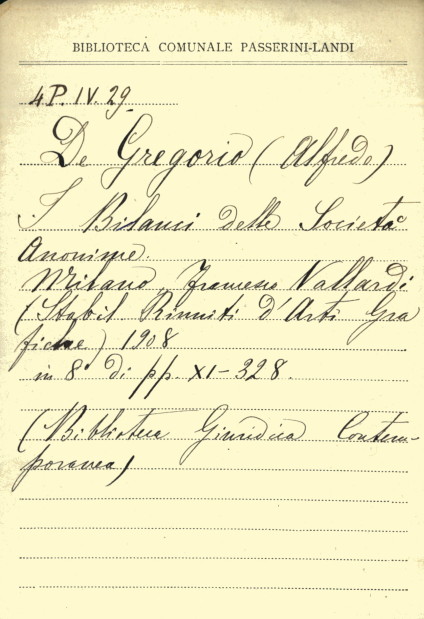 BIBLIOTECA COMUNALE PASSERINI-LANDI
4P. IV. 29
De Gregorio (Alfredo)
I Bilanci delle Società
Anonime.
Milano, Francesco Vallardi
(Stabil Riuniti d'Arti Gra
fiche) 1908
in 8° di pp. XI-328.
(Biblioteca Giuridica Contem-
poranea)